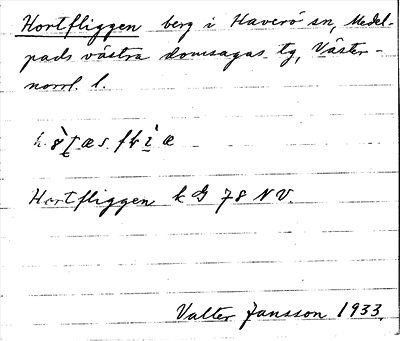 Hortfliggen berg i Haverö sn, Medel-
pads västra domsagas tg, Väster-
norrl. l.
Hortfliggen k G 78 NV.
Valter Jansson 1933.